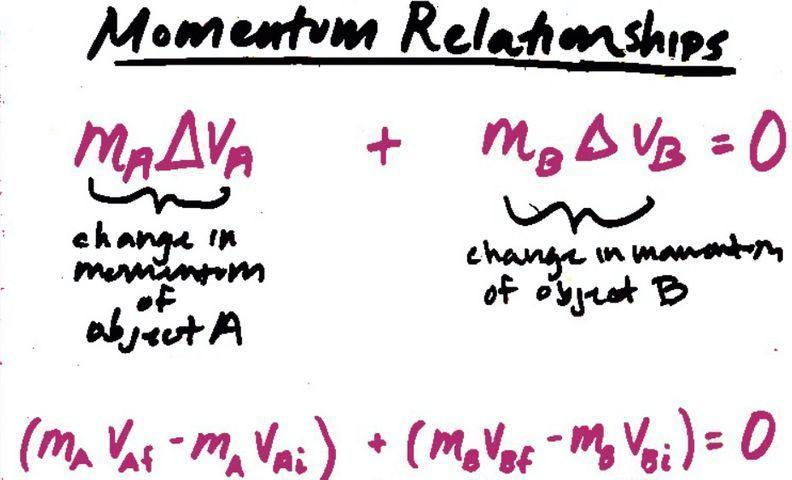 Momentum Relationships
mAΔVA + mBΔVB = 0
change in momentum of object A
change in momentum of object B
(mA VAf - mA VAi) + (mB VBf - mB VBi) = 0